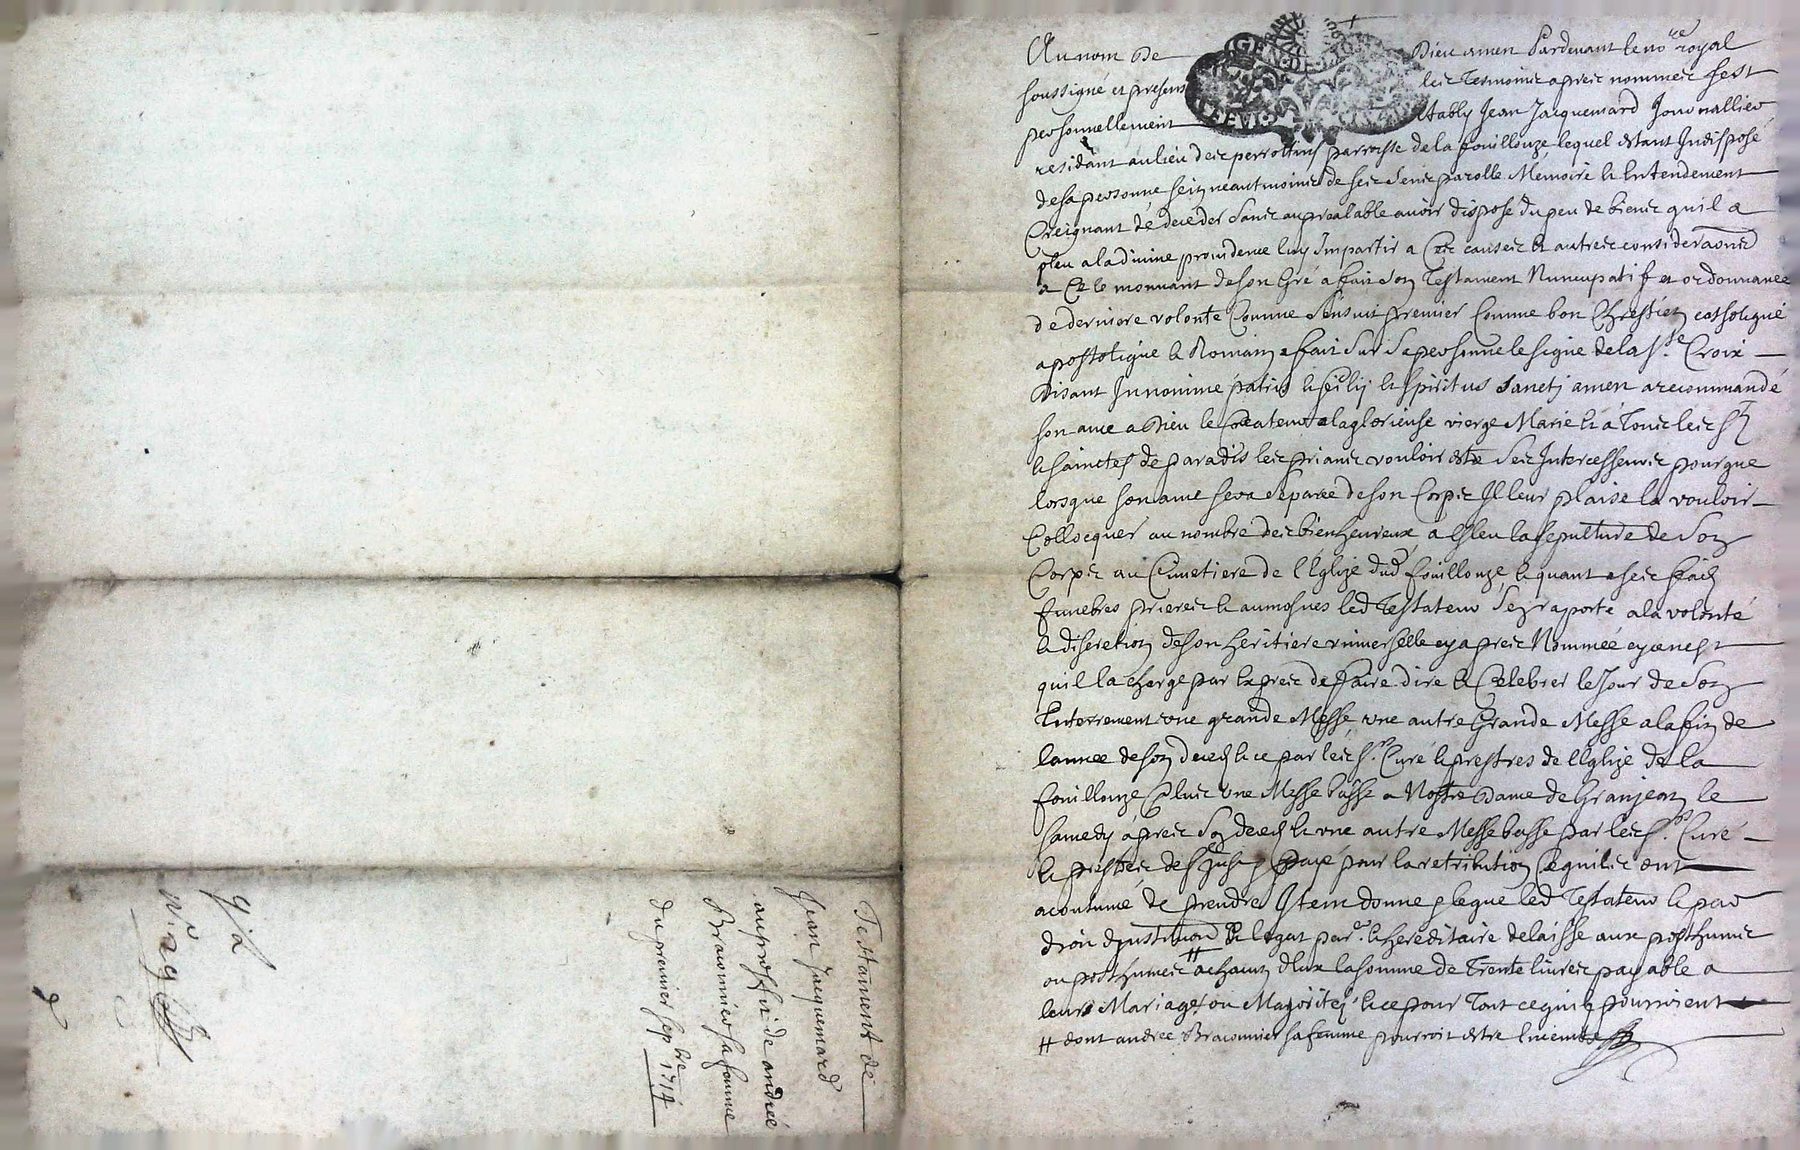 Au nom de Dieu amen Pardevant le no.re royal
soussigné et presens les Tesmoins apres nommes sest
personnellement estably Jean Jacquemard Journallier
residant au lieu des perrottins parroisse de la fouillouze lequel estant Indisposé
de sa personne sein neantmoins de ses sens parolle Mémoire & Entendement
Creignant de deceder sans au prealable avoir disposé du peu de biens quil a
pleu a la divine providence luy Impartir a Ces causes & autres consideraons
a Ce le mouvant de son Gré a fait son Testament Nuncupatif et ordonnance
de derniere volonté Comme sensuit premier Comme bon Chrestien catholique
apostolique & Romain a fait sur sa personne le signe de la S.te Croix
Disant In nomine patris & filij & spiritus sancti amen a recommandé
son ame a Dieu le Createur a la glorieuse vierge Marie & a Tous les S.ts
& sainctes de paradis les priant vouloir estre ses Intercesseurs pour que
lorsque son ame sera separée de son Corps Il leur plaise la vouloir
Collocquer au nombre des bienheureux a esleu la sepulture de son
Corps au Cimetiere de lEglize dud fouillouze & quant a ses frais
funebres prieres & aumosnes led Testateur sen raporte a la volonté
& discretion de son heritiere universelle cy apres Nommée cyanest
quil la charge par Expres de faire dire & Celebrer le Jour de son
Enterrement une grande Messe une autre Grande Messe a la fin de
lannée de son deceds & ce par les S.rs Curé & prestres de lEglize de la
fouillouze Plus une Messe basse a Nostre Dame de Granjean le
samedy apres son deceds & une autre Messe basse par les S.rs Curé
& prestres de S.t Just payé pour la retribution Ce quils ont
acoutumé de prendre Item donne & legue led Testateur & par
droit dinstituon & legat par.r & hereditaire delaisse aux posthumes
ou posthumes # a chacun dEux la somme de Trente livres payable a
leurs Mariage ou Majorité & ce pour Tout ce quils pourroient
# dont andree Braconnier sa femme pourroit estre Enceinte
Testament de
Jean Jacquemard
au proffit de andreé
Braconnier sa femme
du premier sep.bre 1714